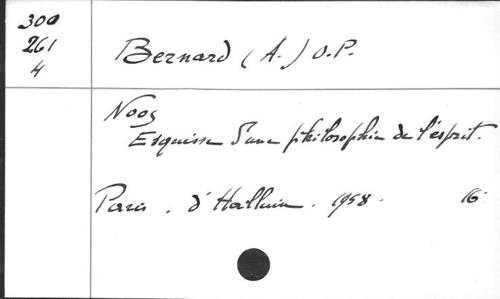 300
261
4
Bernard (A.) O.P.
Noos
Esquisse d'une philosophie de l'esprit.
Paris. d'Halluin. 1958. 16